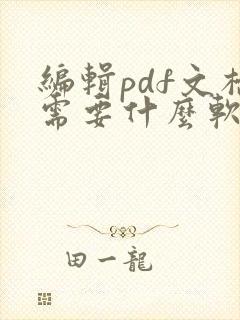 編輯pdf文
需要什麼軟
田一龍